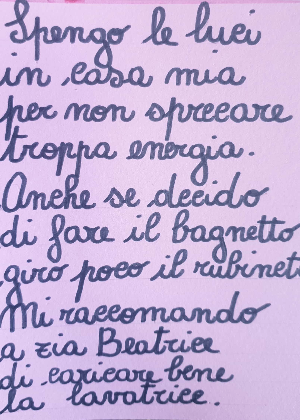 Spengo le luci
in casa mia
per non sprecare
troppa energia.
Anche se decido
di fare il bagnetto
giro poco il rubinet
Mi raccomando
a zia Beatrice
di caricare bene
la lavatrice.